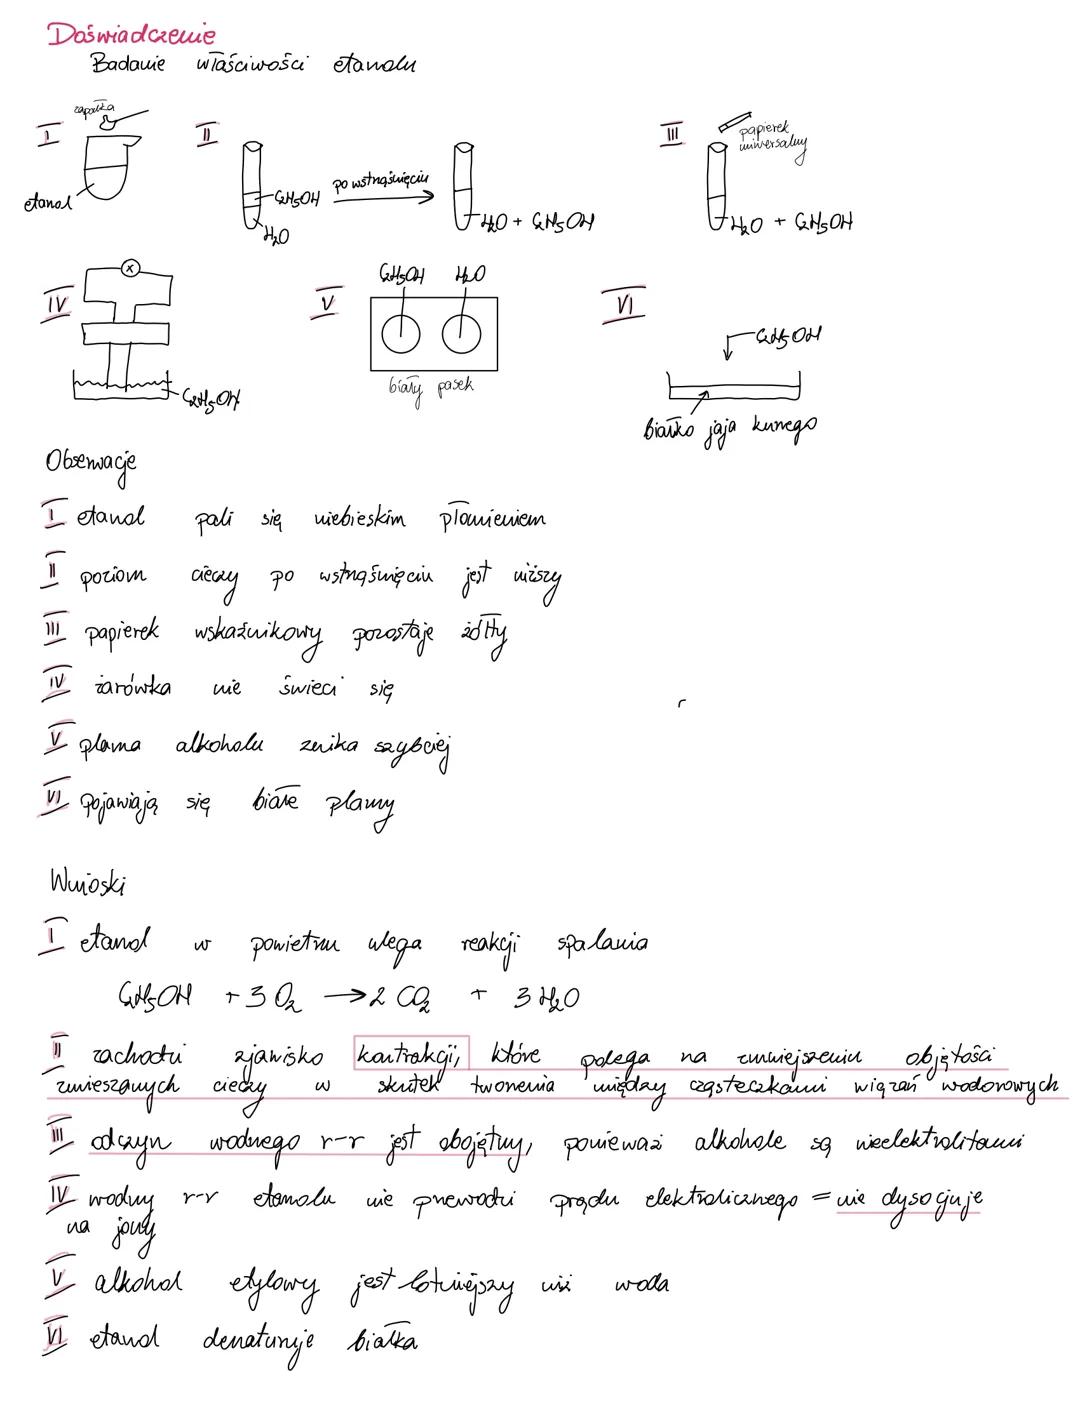 Doświadczenie
Badanie właściwości etanolu
I
zapałka
etanol
II
C2H5OH
H2O
po wstrząśnięciu
H2O + C2H5OH
III
papierek
uniwersalny
H2O + C2H5OH
IV
X
C2H5OH
V
C2H5OH H2O
biały pasek
VI
C2H5OH
białko jaja kurzego
Obserwacje
I etanol pali się niebieskim płomieniem
II poziom cieczy po wstrząśnięciu jest niższy
III papierek wskaźnikowy pozostaje żółty
IV żarówka nie świeci się
V plama alkoholu znika szybciej
VI pojawiają się białe plamy
Wnioski
I etanol w powietrzu ulega reakcji spalania
C2H5OH + 3 O2 → 2 CO2 + 3 H2O
II zachodzi zjawisko kontrakcji, które polega na zmniejszeniu objętości
zmieszanych cieczy w skutek tworzenia między cząsteczkami wiązań wodorowych
III odczyn wodnego r-r jest obojętny, ponieważ alkohole są nieelektrolitami
IV wodny r-r etanolu nie przewodzi prądu elektrolicznego = nie dysocjuje
na jony
V alkohol etylowy jest lotniejszy niż woda
VI etanol denaturuje białka